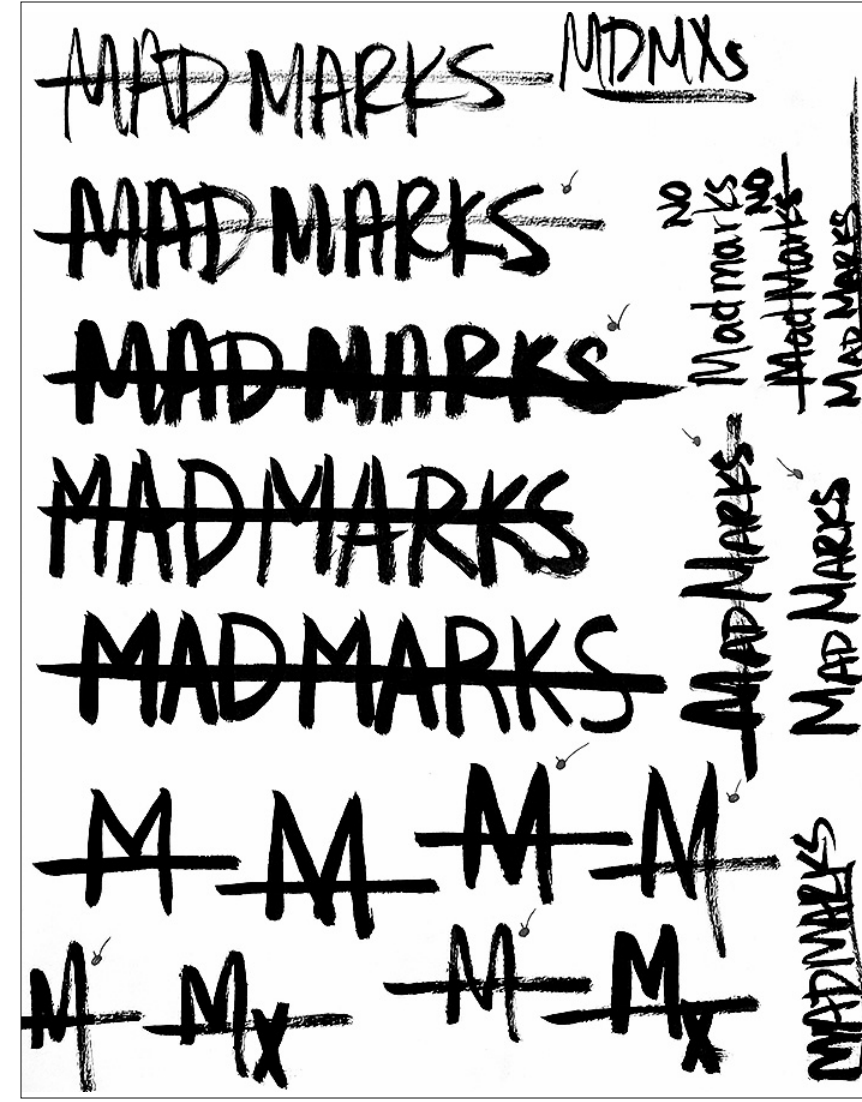 MAD MARKS
MDMXs
MAD MARKS
MAD MARKS
MAD MARKS
MAD MARKS
NO
Madmarks
NO
Mad Marks
MAD MARKS
MAD MARKS
MAD MARKS
MADMARKS
M
M
M
M
M
Mx
M
Mx